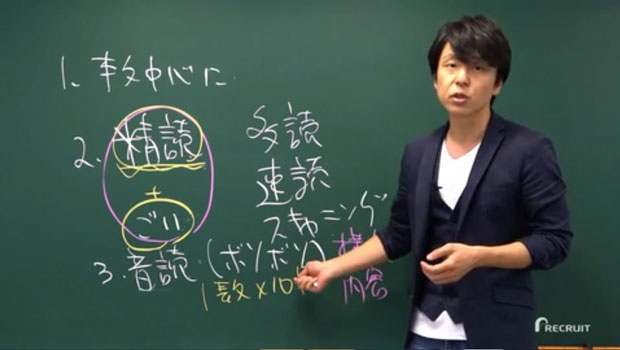 1、長文中心に
2、精読
+
ごい
3、音読(ボソボソ)
1長文×10
多読
速読
スキャニング
内容
RECRUIT